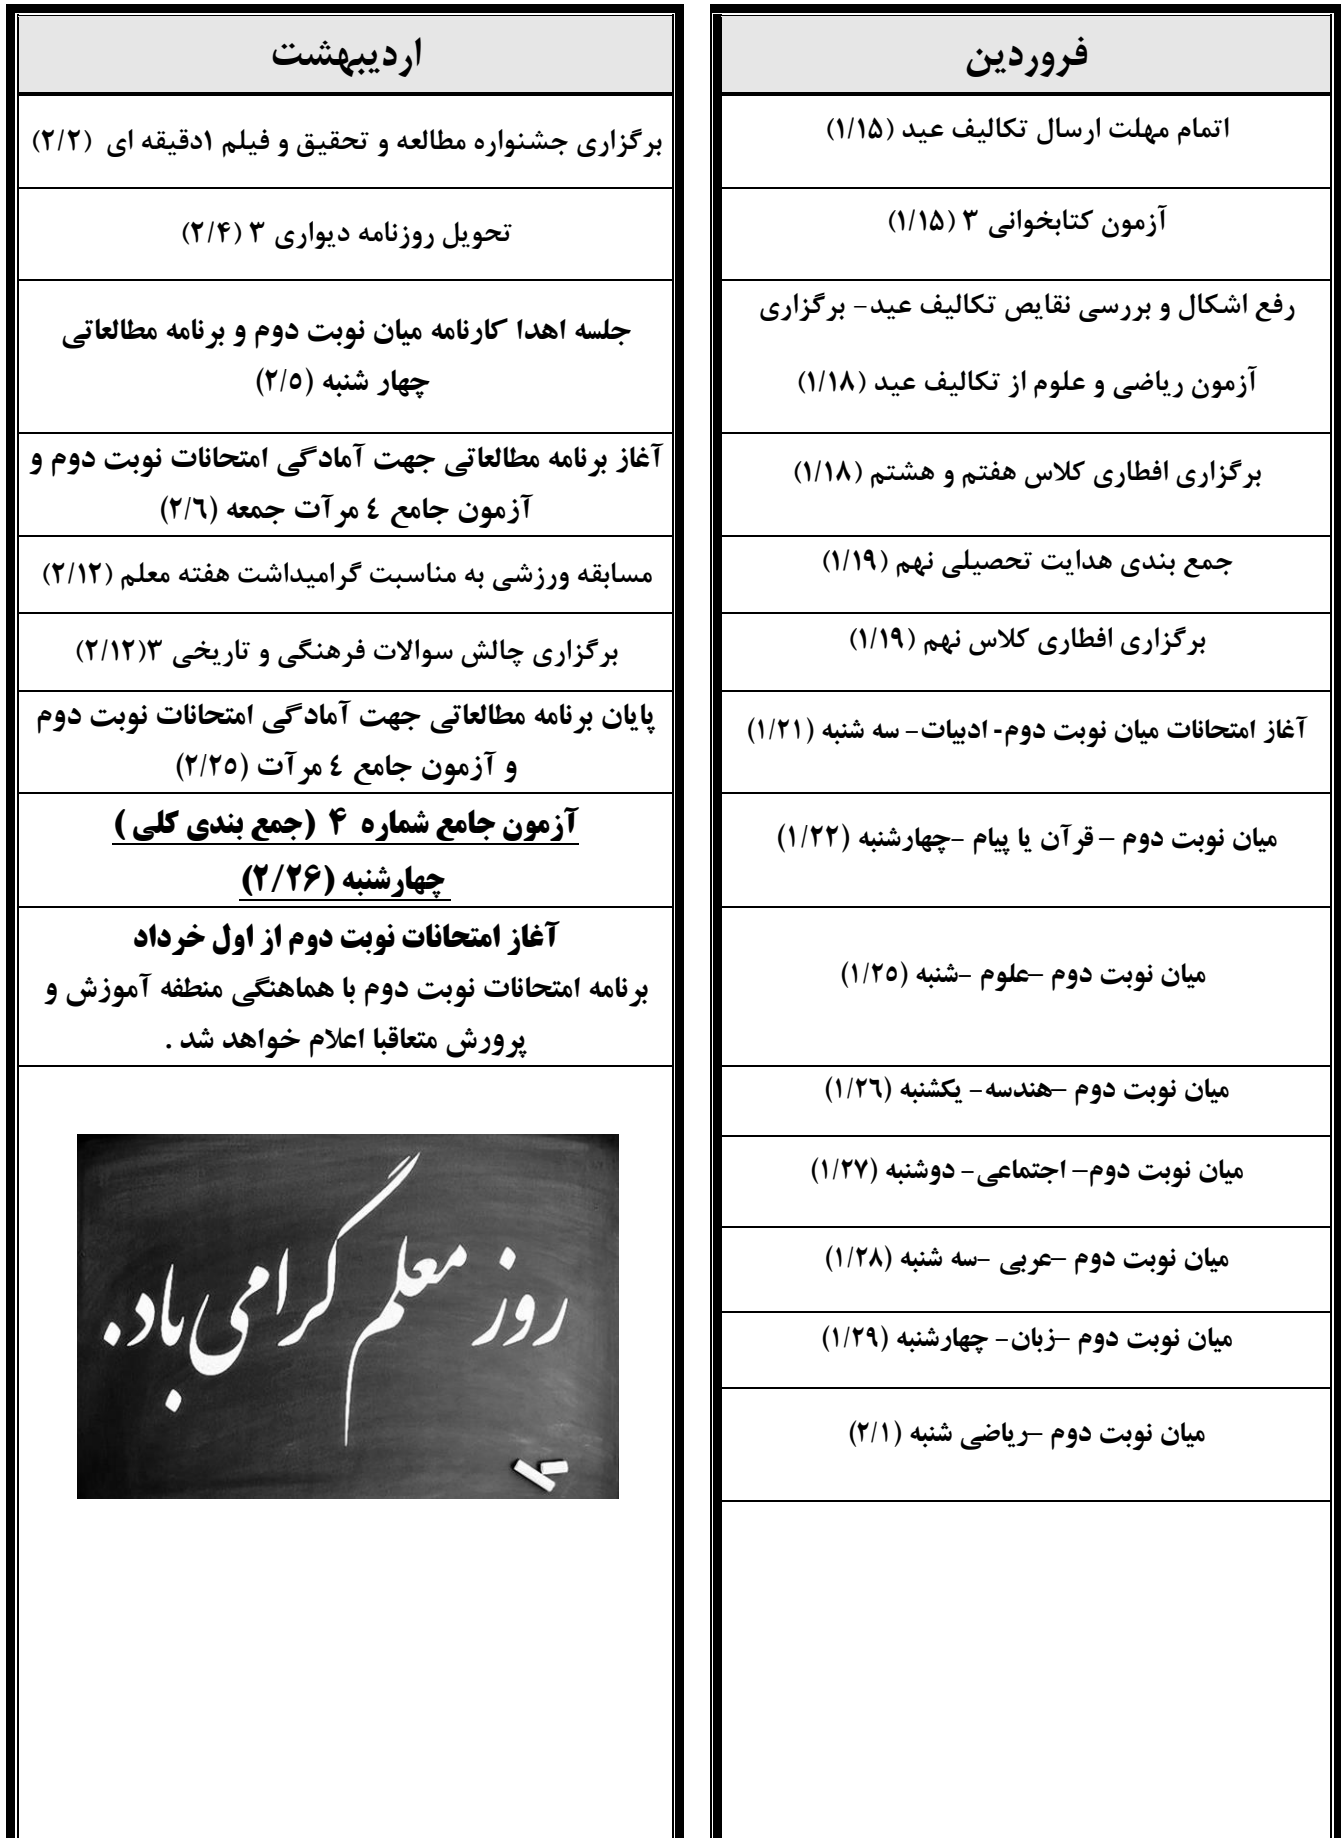 فروردین
اتمام مهلت ارسال تکالیف عید (۱/۱۵)
آزمون کتابخوانی ۳ (۱/۱۵)
رفع اشکال و بررسی نقایص تکالیف عید- برگزاری
آزمون ریاضی و علوم از تکالیف عید (۱/۱۸)
برگزاری افطاری کلاس هفتم و هشتم (۱/۱۸)
جمع بندی هدایت تحصیلی نهم (۱/۱۹)
برگزاری افطاری کلاس نهم (۱/۱۹)
آغاز امتحانات میان نوبت دوم- ادبیات- سه شنبه (۱/۲۱)
میان نوبت دوم – قرآن یا پیام -چهارشنبه (۱/۲۲)
میان نوبت دوم –علوم -شنبه (۱/۲٥)
میان نوبت دوم –هندسه- یکشنبه (۱/۲٦)
میان نوبت دوم– اجتماعی- دوشنبه (۱/۲۷)
میان نوبت دوم –عربی -سه شنبه (۱/۲۸)
میان نوبت دوم –زبان- چهارشنبه (۱/۲۹)
میان نوبت دوم –ریاضی شنبه (۲/۱)
اردیبهشت
برگزاری جشنواره مطالعه و تحقیق و فیلم ۱دقیقه ای (۲/۲)
تحویل روزنامه دیواری ۳ (۲/۴)
جلسه اهدا کارنامه میان نوبت دوم و برنامه مطالعاتی
چهار شنبه (۲/٥)
آغاز برنامه مطالعاتی جهت آمادگی امتحانات نوبت دوم و
آزمون جامع ٤ مرآت جمعه (۲/٦)
مسابقه ورزشی به مناسبت گرامیداشت هفته معلم (۲/۱۲)
برگزاری چالش سوالات فرهنگی و تاریخی ۳(۲/۱۲)
پایان برنامه مطالعاتی جهت آمادگی امتحانات نوبت دوم
و آزمون جامع ٤ مرآت (۲/۲٥)
آزمون جامع شماره ۴ (جمع بندی کلی )
چهارشنبه (۲/۲۶)
آغاز امتحانات نوبت دوم از اول خرداد
برنامه امتحانات نوبت دوم با هماهنگی منطفه آموزش و
پرورش متعاقبا اعلام خواهد شد .
روز معلم گرامی باد.